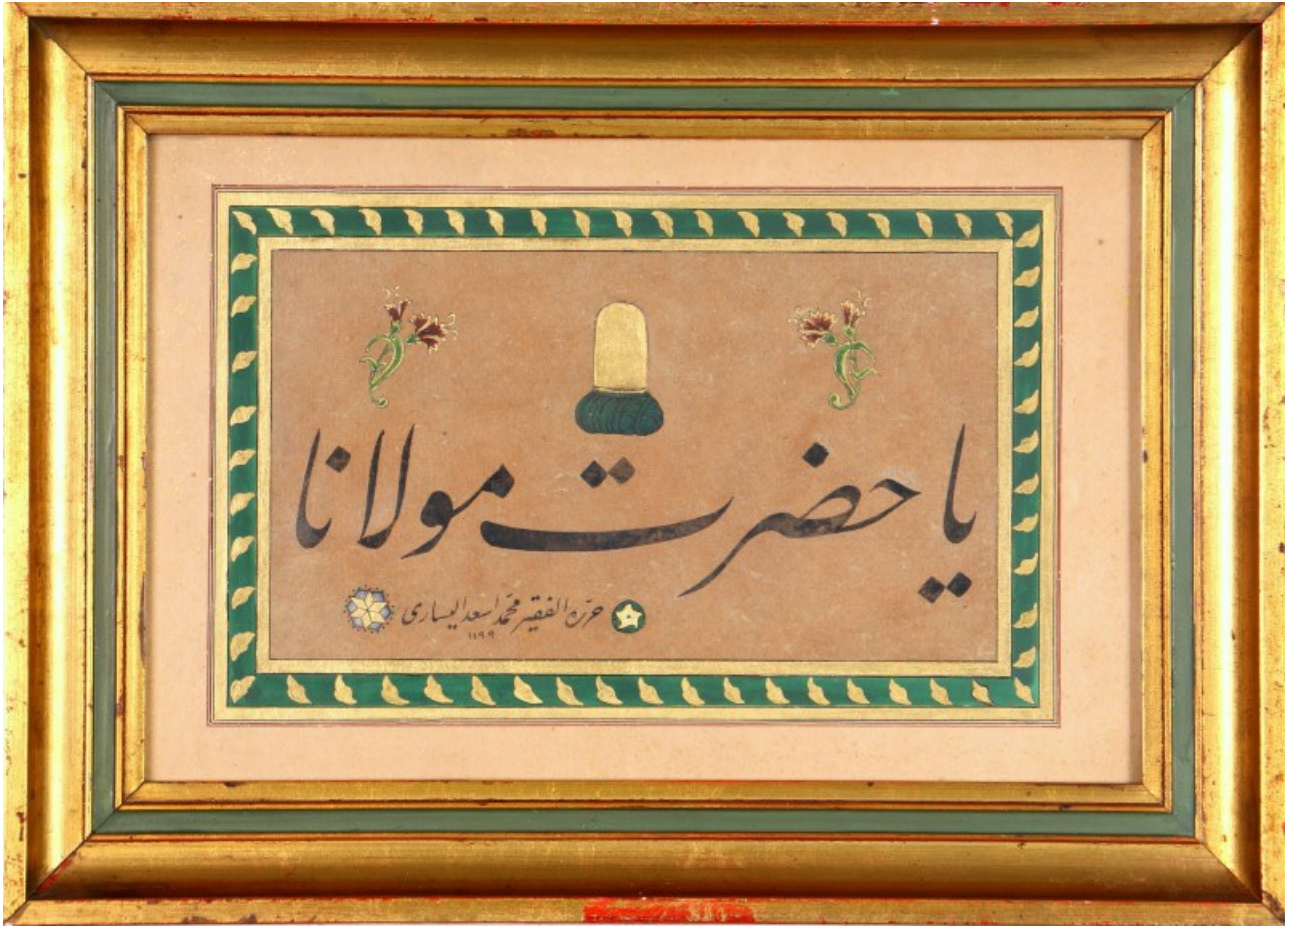 يا حضرت مولانا
حرّره الفقير محمّد اسعد اليسارى
١١٩٩